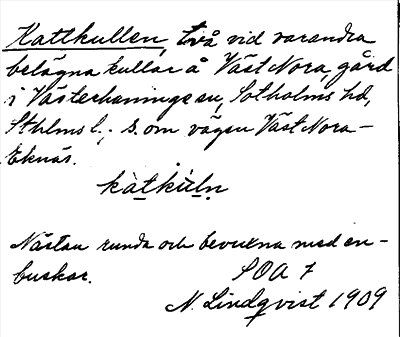 Kattkullen, två vid varandra
belägna kullar å Väst Nora gård
i Västerhaninge sn, Sotholms hd,
Sthlms l.; s. om vägen Väst Nora-
Eknäs.
kàtkùln
Nästan runda och bevuxna med en-
buskar.
SOA 7
N. Lindqvist 1909